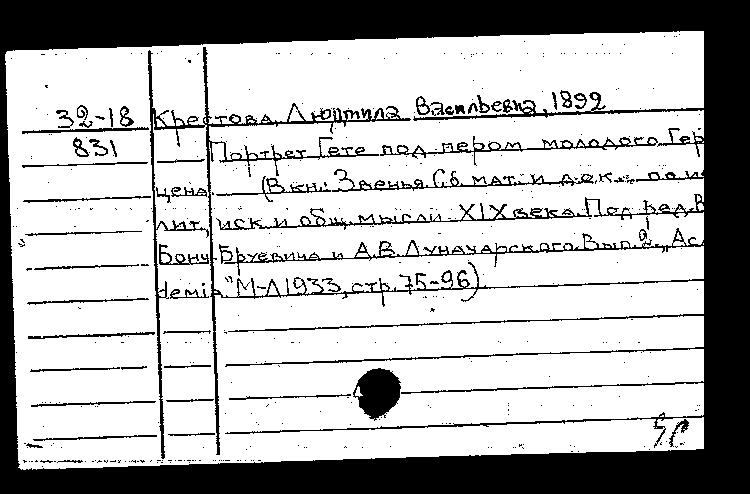 32-18 Крестова, Людмила Васильевна, 1892
831 Портрет Гете под пером молодого Гер
цена. (В кн.: Звенья. Сб. мат. и док. по ис
лит., иск и общ. мысли XIX века. Под ред. В
Бонч-Бруевича и А.В. Луначарского. Вып. 2. „Ac
demia" М-Л 1933, стр. 75-96)